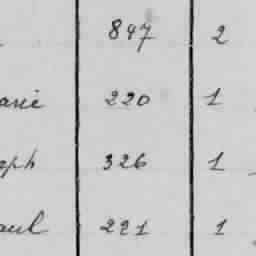 847 2
arie 220 1
eph 326 1
aul 221 1